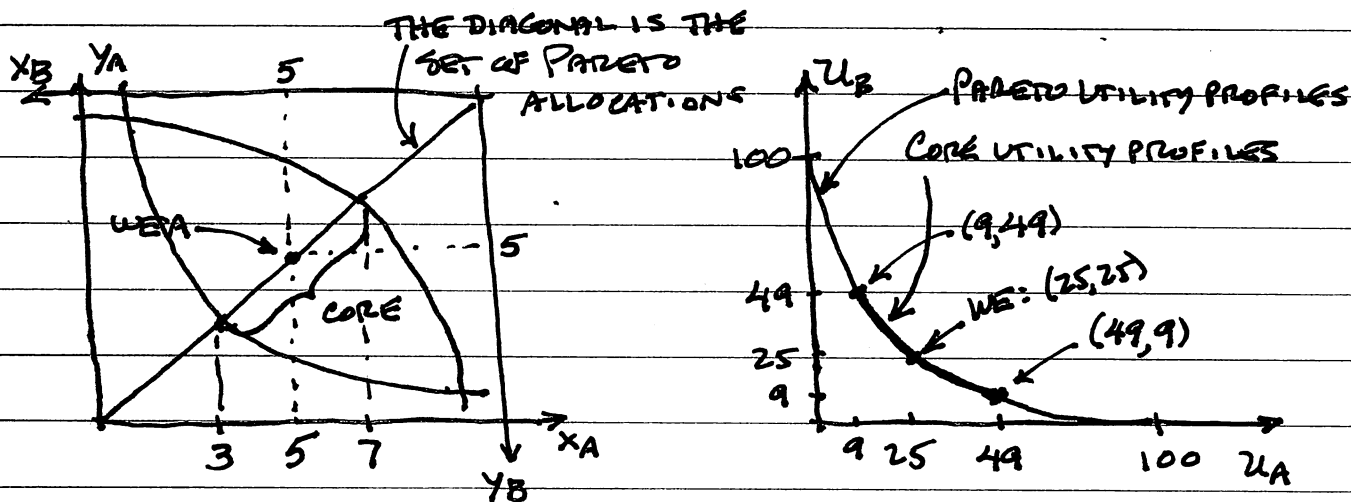 THE DIAGONAL IS THE
SET OF PARETO
ALLOCATIONS
XB
YA
5
WEA
5
CORE
3
5
7
XA
YB
UB
PARETO UTILITY PROFILES
100
CORE UTILITY PROFILES
(9,49)
49
WE: (25,25)
(49,9)
25
9
9
25
49
100
UA